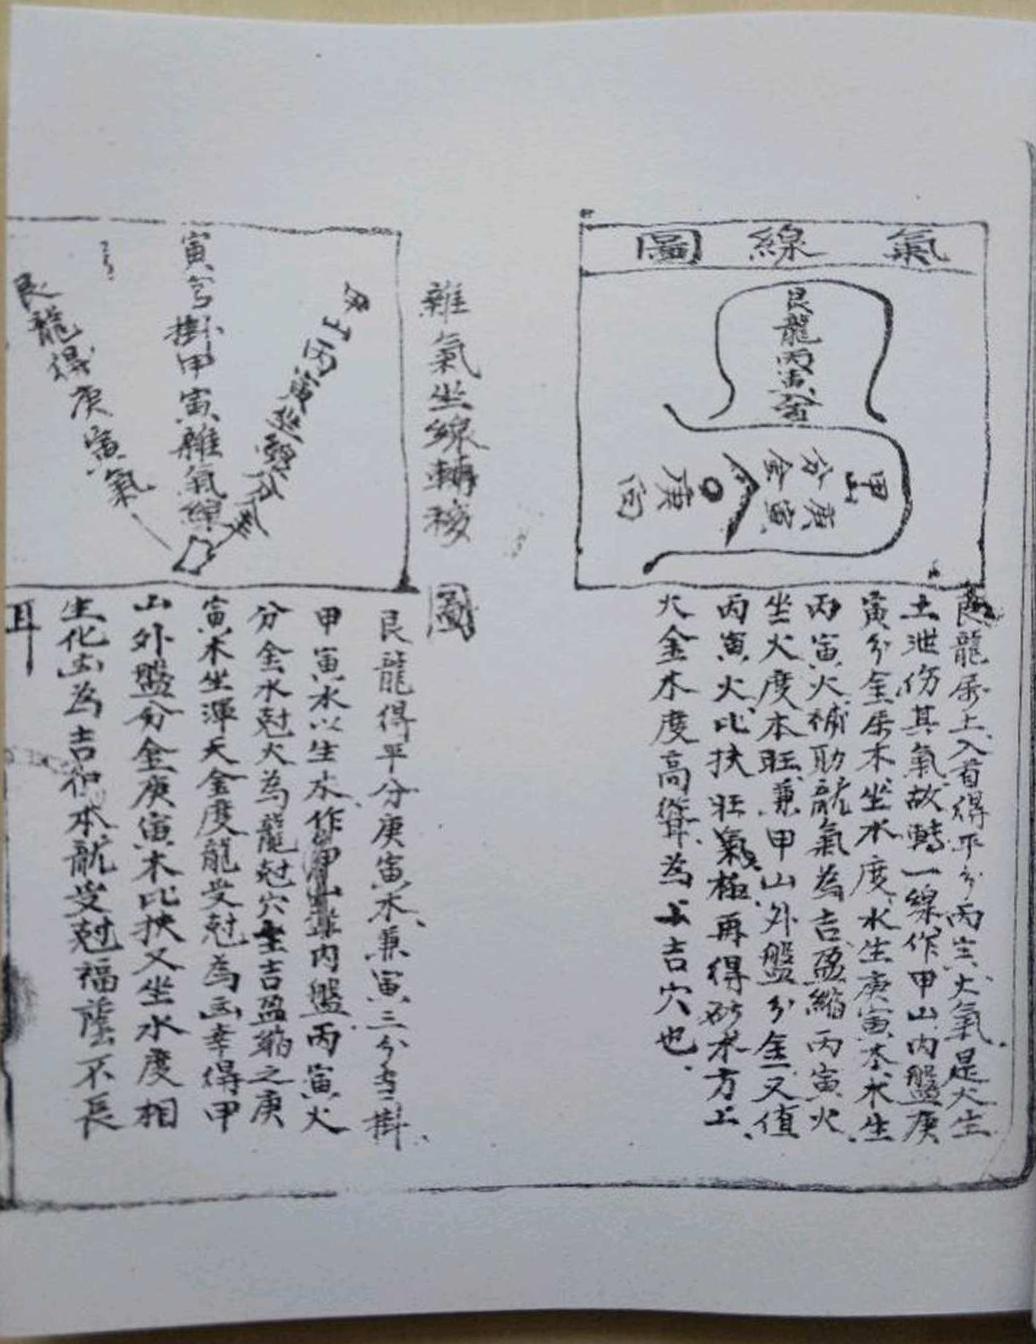 氣線圖
艮龍丙寅分金
甲山
庚寅
分金
庚向
艮龍屬土入首得平分丙寅火氣是火生
土泄伤其氣故轉一線作甲山内盤庚
寅分金屬木坐水度水生庚寅木木生
丙寅火補助龍氣為吉盈縮丙寅火
坐火度本旺兼甲山外盤分金又值
丙寅火比扶旺氣極再得砂水方上
火金木度高聳為上吉穴也
雜氣坐線轉移圖
山丙寅坐線分金
寅兮掛甲寅雜氣線
艮龍得庚寅氣
艮龍得平分庚寅木兼寅三分掛
甲寅水以生木作甲山内盤丙寅火
分金水尅火為龍尅穴吉盈縮之庚
寅木坐渾天金度龍受尅為凶幸得甲
山外盤分金庚寅木比扶又坐水度相
生化凶為吉但本龍受尅福蔭不長
耳